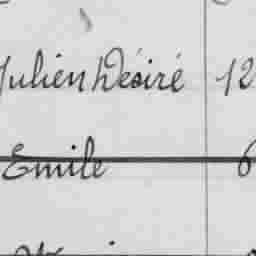 Julien Désiré 12
Emile 6